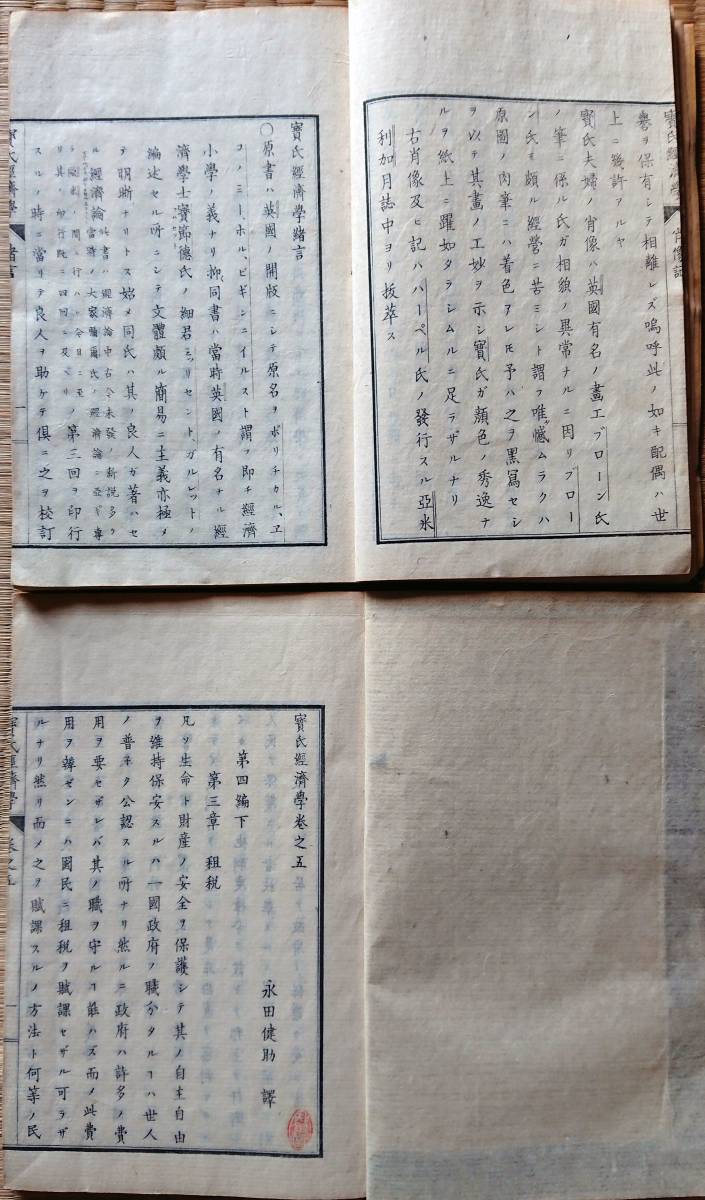 寳氏經濟學
肖像記
譽ヲ保有シテ相離レズ嗚呼此ノ如キ配偶ハ世
上ニ幾許アルヤ
寳氏夫婦ノ肖像ハ英國有名ノ畫工ブローン氏
ノ筆ニ係ル氏ガ相貌ノ異常ナルニ因リブロー
ン氏モ頗ル經營ニ苦ミシト謂フ唯憾ムラクハ
原圖ノ肉筆ニハ着色アレ𪜈予ハ之ヲ黒冩セシ
ヲ以テ其畫ノ工妙ヲ示シ寳氏ガ顔色ノ秀逸ナ
ルヲ紙上ニ躍如タラシムルニ足ラザルナリ
右肖像及ヒ記ハハーペル氏ノ發行スル亞米
利加月誌中ヨリ抜萃ス
寳氏經濟學緒言
〇原書ハ英國ノ開版ニシテ原名ヲポリチカル、エ
コノミー、ホル、ビギンニイルスト謂フ即チ經濟
小學ノ義ナリ抑同書ハ當時英國ノ有名ナル經
濟學士寳節德氏ノ細君ミッリセント、ガルレットノ
編述セル所ニシテ文體頗ル簡易ニ主義亦極メ
テ明晰ナリトス始メ同氏ハ其ノ良人ガ著ハセ
ル經濟論
此書ハ經濟論中古今未發ノ新説多ク
當時ノ大家彌爾氏ノ經濟論ニ亞ギ專
ノ間ニ行ハレ今日ニ至
リ其ノ印行既ニ四回ニ及ベリ
ノ第三回ヲ印行
スルノ時ニ當リテ良人ヲ助ケテ俱ニ之ヲ校訂
寳氏經濟學
緒言
一
寳氏經濟學卷之五
永田健助 譯
第四編下
第三章 租税
凡ソ生命ト財産ノ安全ヲ保護シテ其ノ自主自由
ヲ維持保安スルハ一國政府ノ職分タルヿハ世人
ノ普ネク公認スル所ナリ然ルニ政府ハ許多ノ費
用ヲ要セザレバ其ノ職ヲ守ルヿ能ハズ而メ此費
用ヲ辨ゼンニハ國民ニ租税ヲ賦課セザル可ラザ
ルナリ然リ而メ之ヲ賦課スルノ方法ト何等ノ民
寳氏經濟學
卷之五
一